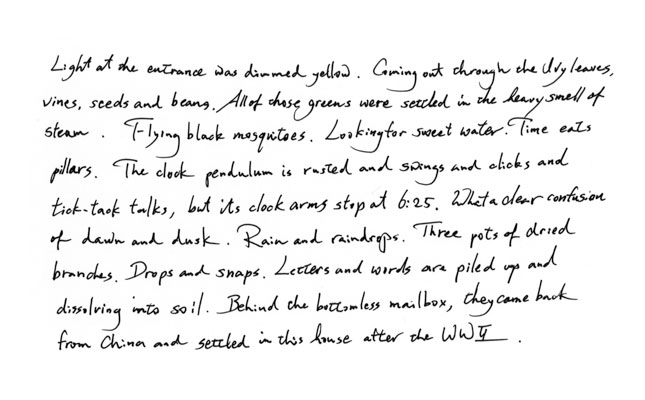 Light at the entrance was dimmed yellow. Coming out through the Ivy leaves,
vines, seeds and beans. All of those greens were settled in the heavy smell of
steam. Flying black mosquitoes. Looking for sweet water. Time eats
pillars. The clock pendulum is rusted and swings and clicks and
tick-tack talks, but its clock arms stop at 6:25. What a clear confusion
of dawn and dusk. Rain and raindrops. Three pots of dried
branches. Drops and snaps. Letters and words are piled up and
dissolving into soil. Behind the bottomless mailbox, they came back
from China and settled in this house after the WWII.